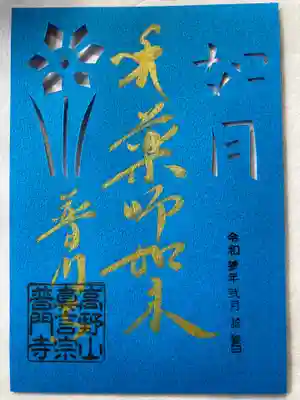 如月
令和参年 弐月
奉
薬師如来
普門
高野山
真言宗
普門寺